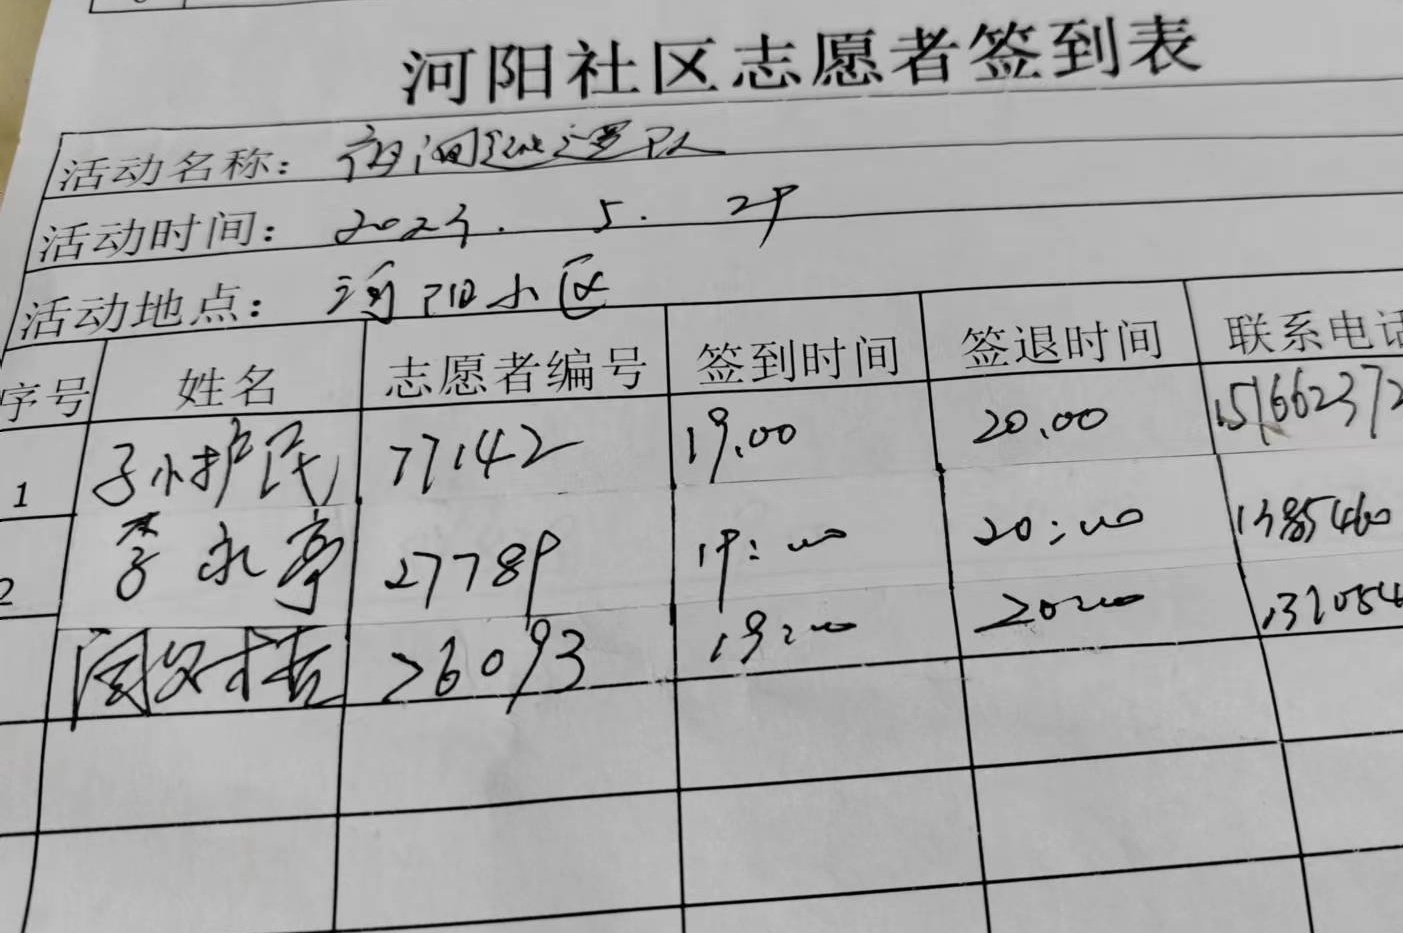 河阳社区志愿者签到表
活动名称： 夜间巡逻队
活动时间： 2024. 5. 29
活动地点： 河阳小区
序号 姓名 志愿者编号 签到时间 签退时间 联系电话
1 孙护民 77142 19.00 20.00 151662372
2 李永亭 27789 19:00 20:00 1385460
26093 19:00 20:00 132054